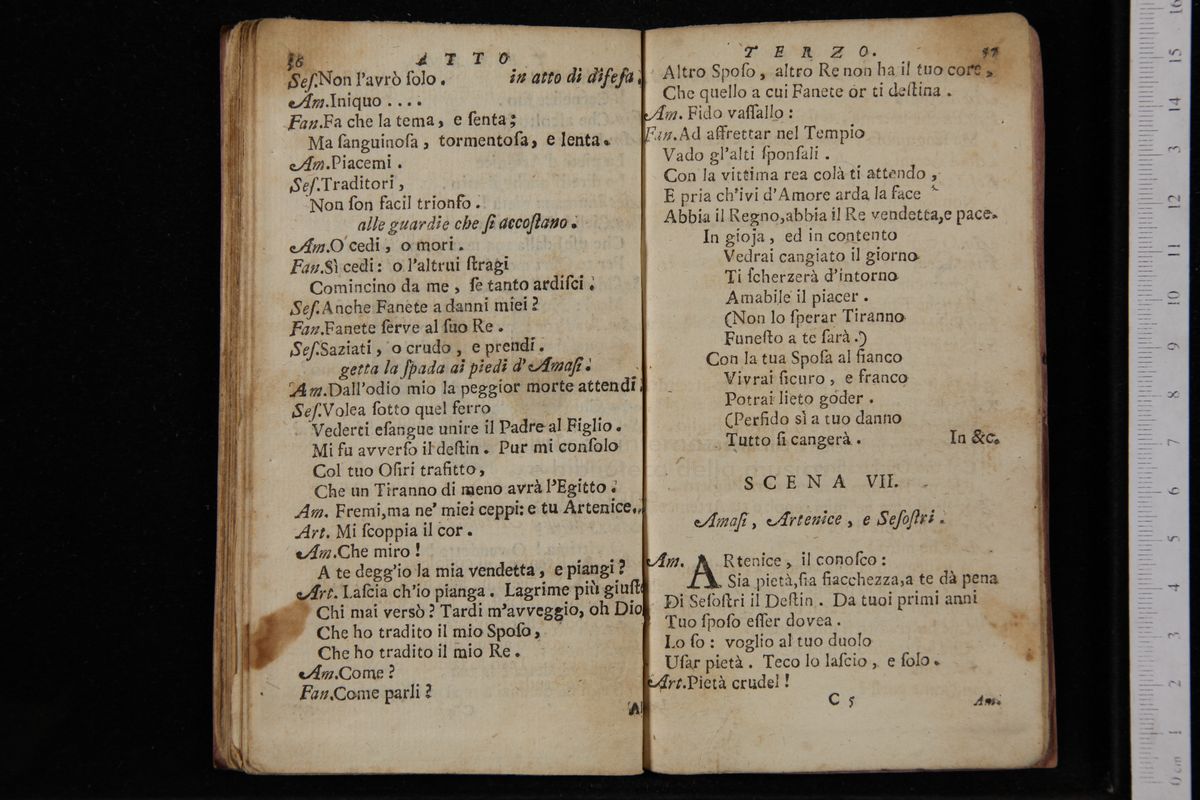 56 ATTO
Seſ.Non l'avrò ſolo. in atto di difeſa.
Am.Iniquo....
Fan.Fa che la tema, e ſenta;
Ma ſanguinoſa, tormentoſa, e lenta.
Am.Piacemi.
Seſ.Traditori,
Non ſon facil trionfo.
alle guardie che ſi accoſtano.
Am.O cedi, o mori.
Fan.Sì cedi: o l'altrui ſtragi
Comincino da me, ſe tanto ardiſci.
Seſ.Anche Fanete a danni miei?
Fan.Fanete ſerve al ſuo Re.
Seſ.Saziati, o crudo, e prendi.
getta la ſpada ai piedi d'Amaſi.
Am.Dall'odio mio la peggior morte attendi.
Seſ.Volea ſotto quel ferro
Vederti eſangue unire il Padre al Figlio.
Mi fu avverſo il deſtin. Pur mi conſolo
Col tuo Oſiri trafitto,
Che un Tiranno di meno avrà l'Egitto.
Am. Fremi,ma ne' miei ceppi: e tu Artenice..
Art. Mi ſcoppia il cor.
Am.Che miro!
A te degg'io la mia vendetta, e piangi?
Art. Laſcia ch'io pianga. Lagrime più giuſte
Chi mai versò? Tardi m'avveggio, oh Dio
Che ho tradito il mio Spoſo,
Che ho tradito il mio Re.
Am.Come?
Fan.Come parli?
TERZO. 57
Altro Spoſo, altro Re non ha il tuo core,
Che quello a cui Fanete or ti deſtina.
Am. Fido vaſſallo:
Fan.Ad affrettar nel Tempio
Vado gl'alti ſponſali.
Con la vittima rea colà ti attendo,
E pria ch'ivi d'Amore arda la face
Abbia il Regno,abbia il Re vendetta,e pace.
In gioja, ed in contento
Vedrai cangiato il giorno
Ti ſcherzerà d'intorno
Amabile il piacer.
(Non lo ſperar Tiranno
Funeſto a te ſarà.)
Con la tua Spoſa al fianco
Vivrai ſicuro, e franco
Potrai lieto goder.
(Perfido sì a tuo danno
Tutto ſi cangerà. In &c.
SCENA VII.
Amaſi, Artenice, e Seſoſtri.
Am. ARtenice, il conoſco:
Sia pietà,ſia fiacchezza,a te dà pena
Di Seſoſtri il Deſtin. Da tuoi primi anni
Tuo ſpoſo eſſer dovea.
Lo ſo: voglio al tuo duolo
Uſar pietà. Teco lo laſcio, e ſolo.
Art.Pietà crudel!
C 5 Am.